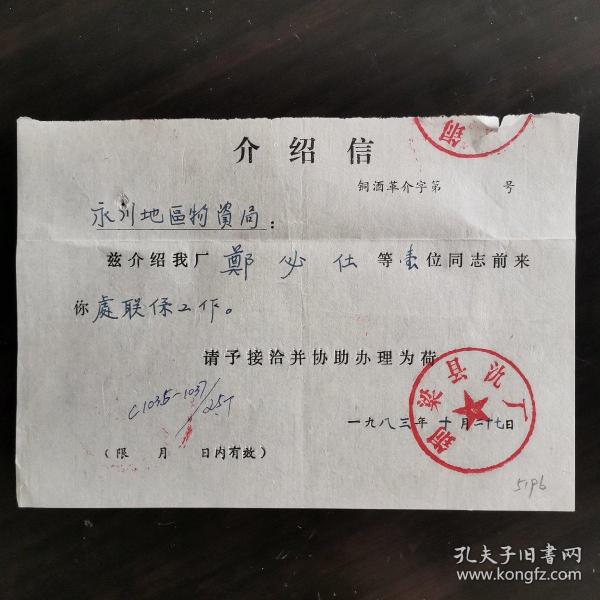 铜
介绍信
铜酒革介字第 号
永川地區物資局：
兹介绍我厂鄭必仕等壹位同志前来
你處联係工作。
请予接洽并协助办理为荷
铜梁县酒厂
C1035-1037/25T
一九八三年十月二十七日
（限 月 日内有效）
5196
孔夫子旧书网
www.kongfz.com